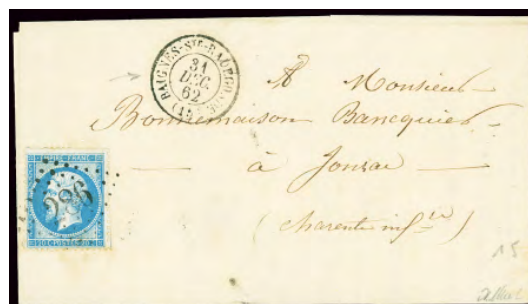 BAIGNES-STE-RADEGONDE
31
DEC.
62
(15)
A Monsieur
Bonnemaison Banquier
à Jonzac
(Charente infre)
EMPIRE FRANC
286
20 C POSTES 20 C
15